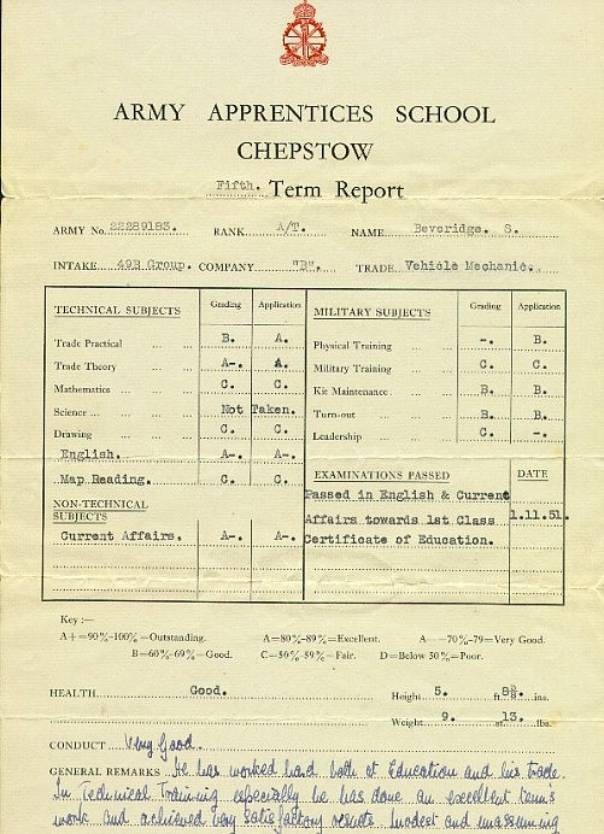 ARMY APPRENTICES SCHOOL
CHEPSTOW
Fifth. Term Report
ARMY No. 22289183. RANK A/T. NAME Beveridge. S.
INTAKE 49B Group. COMPANY "B". TRADE Vehicle Mechanic.
TECHNICAL SUBJECTS Grading Application
Trade Practical B. A.
Trade Theory A-. A.
Mathematics C. C.
Science Not Taken.
Drawing C. C.
English. A-. A-.
Map Reading. C. C.
NON-TECHNICAL
SUBJECTS
Current Affairs. A-. A-.
MILITARY SUBJECTS Grading Application
Physical Training -. B.
Military Training C. C.
Kit Maintenance B. B.
Turn-out B. B.
Leadership C. -.
EXAMINATIONS PASSED DATE
Passed in English & Current
Affairs towards 1st Class 1.11.51.
Certificate of Education.
Key :—
A+=90%-100%=Outstanding. A=80%-89%=Excellent. A—=70%-79=Very Good.
B=60%-69%=Good. C=50%-59%=Fair. D=Below 50%=Poor.
HEALTH Good. Height 5. ft. 8 ins.
Weight 9. st. 13. lbs.
CONDUCT Very Good.
GENERAL REMARKS He has worked hard both at Education and his trade.
In Technical Training especially he has done an excellent term's
work and achieved very satisfactory results. Modest and unassuming